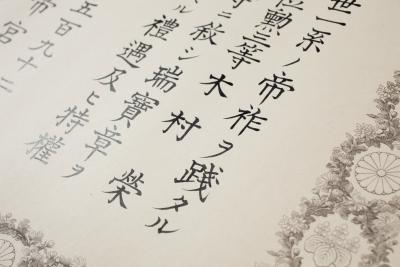 世一系ノ帝祚ヲ踐タル
位勲三等木村榮
ニ敍シ瑞寶章ヲ
ル禮遇及ヒ特權
五百九十二